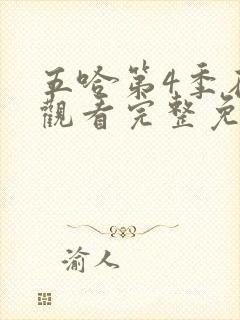 五哈第4季在
觀看完整免
渝人